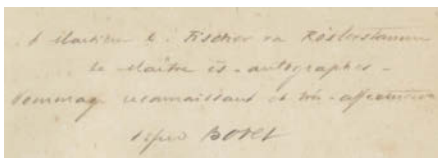 à Monsieur E. Fischer von Röslerstamm
le Maître ès-autographes -
hommage reconnaissant et très-affectueux
Alfred BOVET